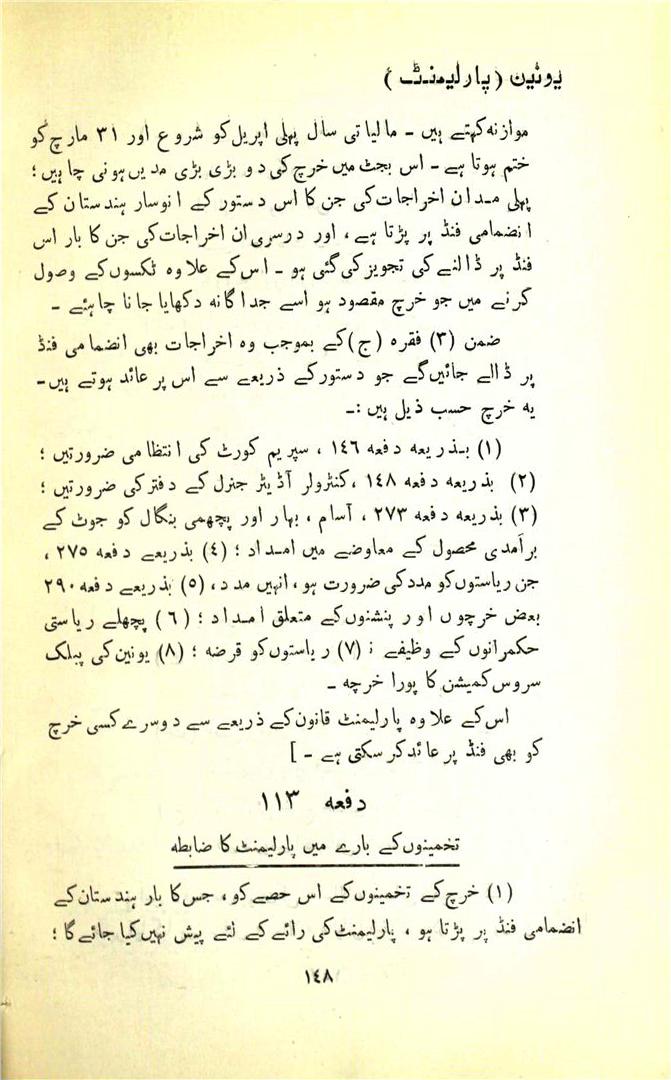 یونین (پارلیمنٹ)
موازنہ کہتے ہیں ۔ مالیاتی سال پہلی اپریل کو شروع اور ۳۱ مارچ کو
ختم ہوتا ہے ۔ اس بجٹ میں خرچ کی دو بڑی بڑی مدیں ہونی چاہیں ؛
پہلی مد ان اخراجات کی جن کا اس دستور کے انوسار ہندستان کے
انضمامی فنڈ پر پڑتا ہے ، اور درسری ان اخراجات کی جن کا بار اس
فنڈ پر ڈالنے کی تجویز کی گئی ہو ۔ اس کے علاوہ ٹکسوں کے وصول
کرنے میں جو خرچ مقصود ہو اسے جداگانہ دکھایا جانا چاہئے ۔
ضمن (۳) فقرہ (ج) کے بموجب وہ اخراجات بھی انضمامی فنڈ
پر ڈالے جائیں گے جو دستور کے ذریعے سے اس پر عائد ہوتے ہیں ۔
یہ خرچ حسب ذیل ہیں :۔
(۱) بذریعہ دفعہ ۱۴۶ ، سپریم کورٹ کی انتظامی ضرورتیں ؛
(۲) بذریعہ دفعہ ۱۴۸ ، کنٹرولر آڈیٹر جنرل کے دفتر کی ضرورتیں ؛
(۳) بذریعہ دفعہ ۲۷۳ ، آسام ، بہار اور پچھمی بنگال کو جوٹ کے
برآمدی محصول کے معاوضے میں امداد ؛ (۴) بذریعے دفعہ ۲۷۵ ،
جن ریاستوں کو مدد کی ضرورت ہو ، انہیں مدد ، (۵) بذریعے دفعہ ۲۹۰
بعض خرچوں اور پنشنوں کے متعلق امداد ؛ (۶) پچھلے ریاستی
حکمرانوں کے وظیفے ؛ (۷) ریاستوں کو قرضہ ؛ (۸) یونین کی پبلک
سروس کمیشن کا پورا خرچہ ۔
اس کے علاوہ پارلیمنٹ قانون کے ذریعے سے دوسرے کسی خرچ
کو بھی فنڈ پر عائد کر سکتی ہے ۔ ]
دفعہ ۱۱۳
تخمینوں کے بارے میں پارلیمنٹ کا ضابطہ
(۱) خرچ کے تخمینوں کے اس حصے کو ، جس کا بار ہندستان کے
انضمامی فنڈ پر پڑتا ہو ، پارلیمنٹ کی رائے کے لئے پیش نہیں کیا جائے گا ؛
۱۴۸